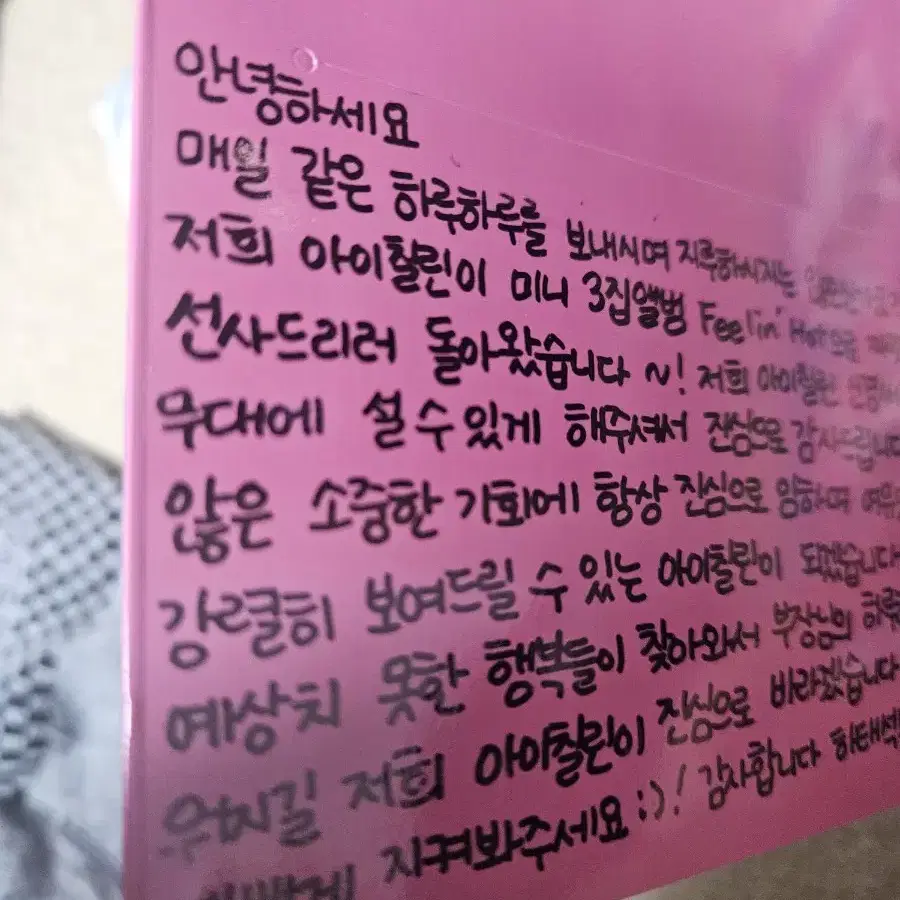 안녕하세요
매일 같은 하루하루를 보내시며 지루하시지는
저희 아이칠린이 미니 3집앨범 Feelin' Hot으로
선사드리러 돌아왔습니다 ~! 저희 아이칠린
무대에 설 수 있게 해주셔서 진심으로 감사드립니다
않은 소중한 기회에 항상 진심으로 임하며
강렬히 보여드릴 수 있는 아이칠린이 되겠습니다
예상치 못한 행복들이 찾아와서 부장님의 하루
저희 아이칠린이 진심으로 바라겠습니다
지켜봐주세요 :)! 감사합니다